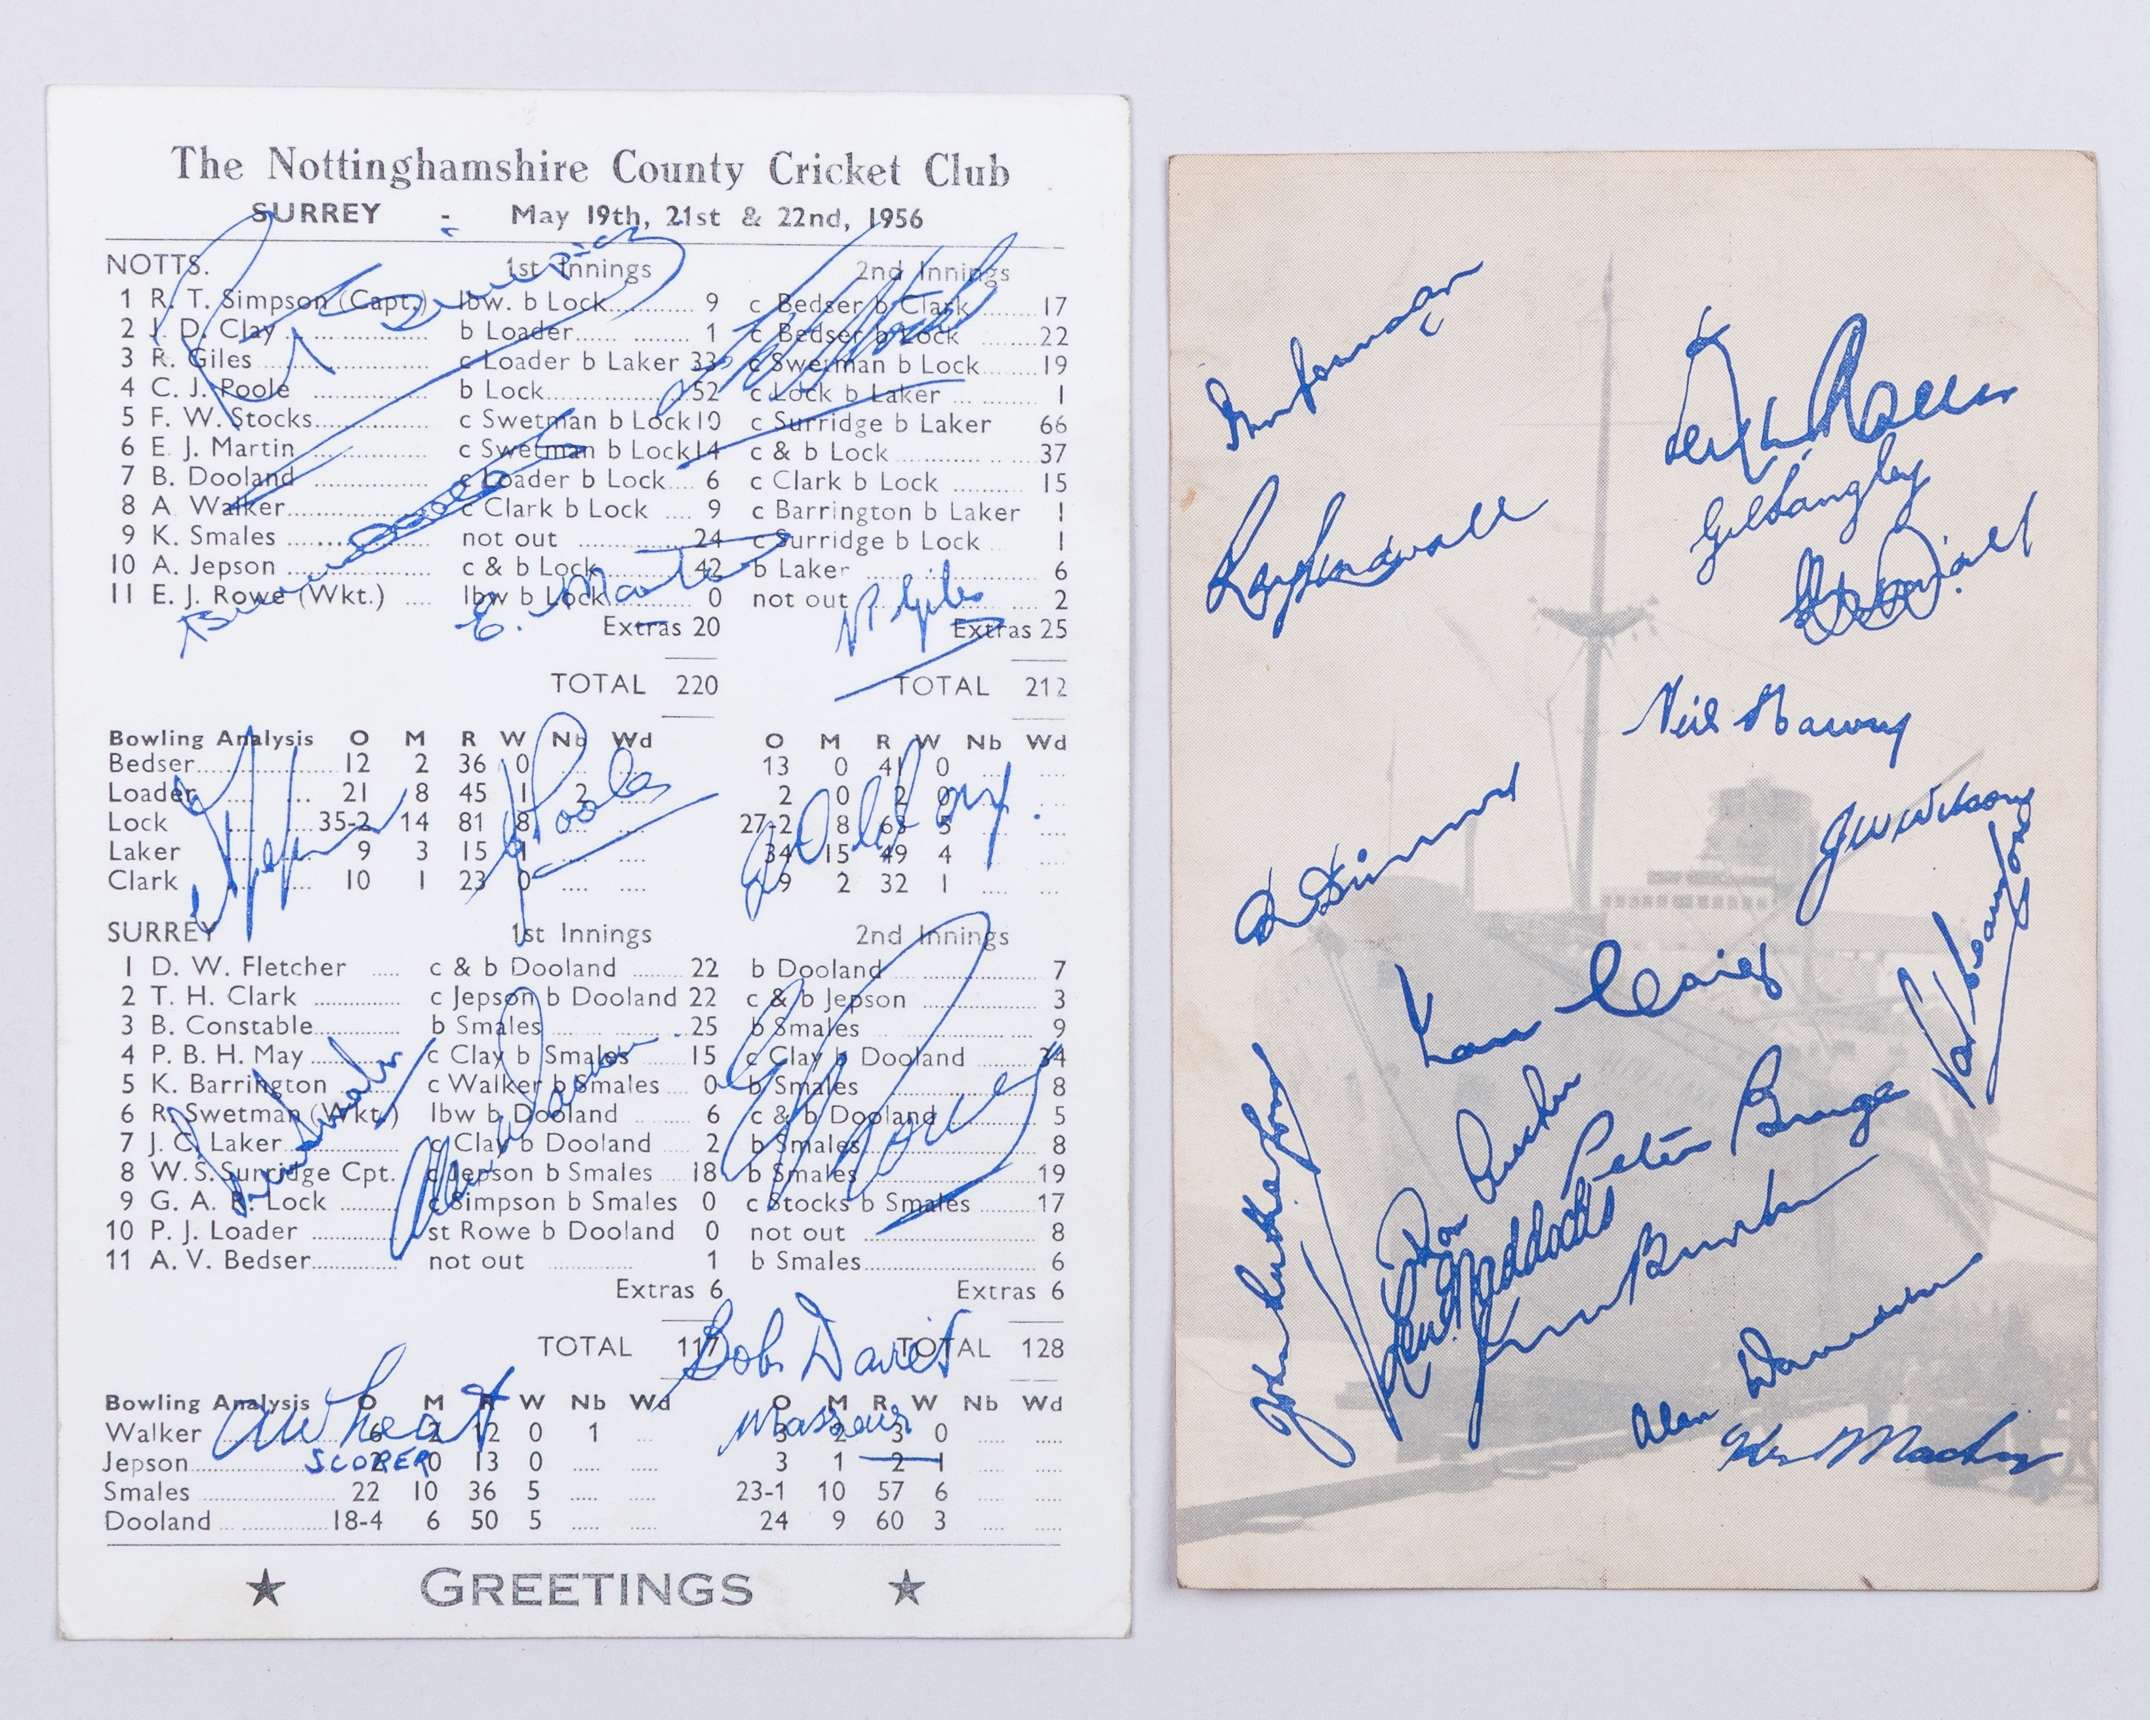 The Nottinghamshire County Cricket Club
SURREY - May 19th, 21st & 22nd, 1956
NOTTS. 1st Innings 2nd Innings
1 R. T. Simpson (Capt.) lbw. b Lock 9 c Bedser b Clark 17
2 J. D. Clay b Loader 1 c Bedser b Lock 22
3 R. Giles c Loader b Laker 33 c Swetman b Lock 19
4 C. J. Poole b Lock 52 c Lock b Laker 1
5 F. W. Stocks c Swetman b Lock 10 c Surridge b Laker 66
6 E. J. Martin c Swetman b Lock 14 c & b Lock 37
7 B. Dooland c Loader b Lock 6 c Clark b Lock 15
8 A Walker c Clark b Lock 9 c Barrington b Laker 1
9 K. Smales not out 24 c Surridge b Lock 1
10 A. Jepson c & b Lock 42 b Laker 6
11 E. J. Rowe (Wkt.) lbw b Lock 0 not out 2
Extras 20 Extras 25
TOTAL 220 TOTAL 212
Bowling Analysis O M R W Nb Wd O M R W Nb Wd
Bedser 12 2 36 0 13 0 41 0
Loader 21 8 45 1 2 2 0 2 0
Lock 35-2 14 81 8 27-2 8 63 5
Laker 9 3 15 1 34 15 49 4
Clark 10 1 23 0 9 2 32 1
SURREY 1st Innings 2nd Innings
1 D. W. Fletcher c & b Dooland 22 b Dooland 7
2 T. H. Clark c Jepson b Dooland 22 c & b Jepson 3
3 B. Constable b Smales 25 b Smales 9
4 P. B. H. May c Clay b Smales 15 c Clay b Dooland 34
5 K. Barrington c Walker b Smales 0 b Smales 8
6 R. Swetman (Wkt.) lbw b Dooland 6 c & b Dooland 5
7 J. C. Laker c Clay b Dooland 2 b Smales 8
8 W. S. Surridge Cpt. c Jepson b Smales 18 b Smales 19
9 G. A. R. Lock c Simpson b Smales 0 c Stocks b Smales 17
10 P. J. Loader st Rowe b Dooland 0 not out 8
11 A. V. Bedser not out 1 b Smales 6
Extras 6 Extras 6
TOTAL 117 TOTAL 128
Bowling Analysis O M R W Nb Wd O M R W Nb Wd
Walker 6 2 12 0 1 3 2 3 0
Jepson 2 0 13 0 3 1 2 1
Smales 22 10 36 5 23-1 10 57 6
Dooland 18-4 6 50 5 24 9 60 3
GREETINGS
R T Simpson
Bruce Dooland
E. Martin
R Giles
Poole
Bob Davies
Masseur
A Wheat
SCORER
Ray Lindwall
Gil Langley
Neil Harvey
R Benaud
J W Wilson
Ian Craig
Pat Crawford
Peter Burge
Len Maddocks
John Rutherford
Alan Davidson
Ken Mackay